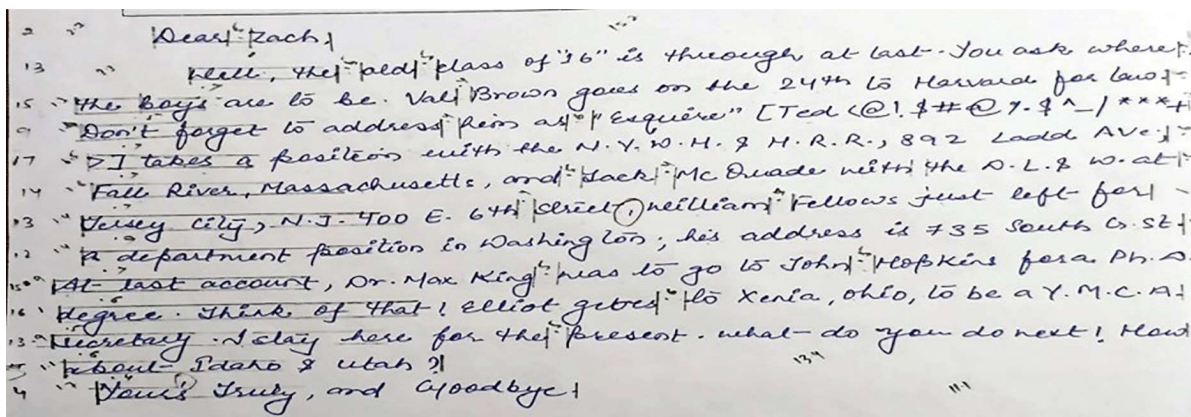 Dear Zach,
Well, the old class of "16" is through at last. You ask where
the boys are to be. Val Brown goes on the 24th to Harvard for law.
Don't forget to address him as "Esquire" [Ted (@!$#@%.$^_/***+
>] takes a position with the N.Y.W.H. & H.R.R., 892 Ladd Ave;
Fall River, Massachusetts, and Jack McQuade with the D.L. & W. at
Jersey City, N.J. 400 E. 6th Street, William Fellows just left for
a department position in Washington; his address is 735 South G. St.
At last account, Dr. Max King was to go to John Hopkins for a Ph.D.
degree. Think of that! Elliot goes to Xenia, Ohio, to be a Y.M.C.A.
Secretary. I stay here for the present. What do you do next! How
about Idaho & Utah?
Yours Truly, and Goodbye